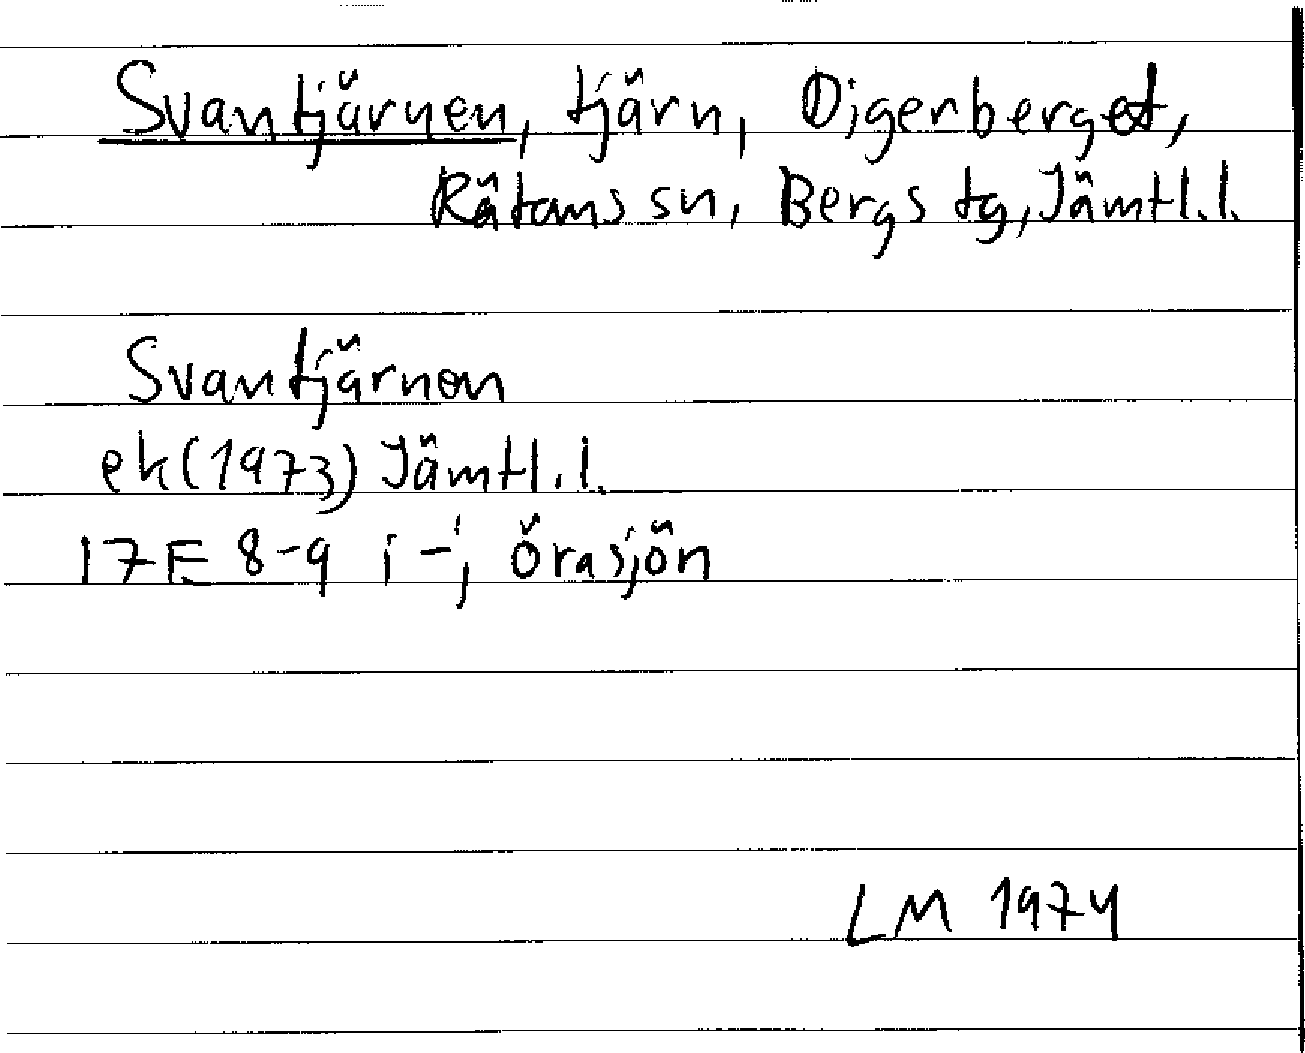 Svantjärnen, tjärn, Digerberget,
Rätans sn, Bergs tg, Jämtl.l.
Svantjärnen
ek(1973) Jämtl.l.
17E 8-9 i-j, Örasjön
LM 1974